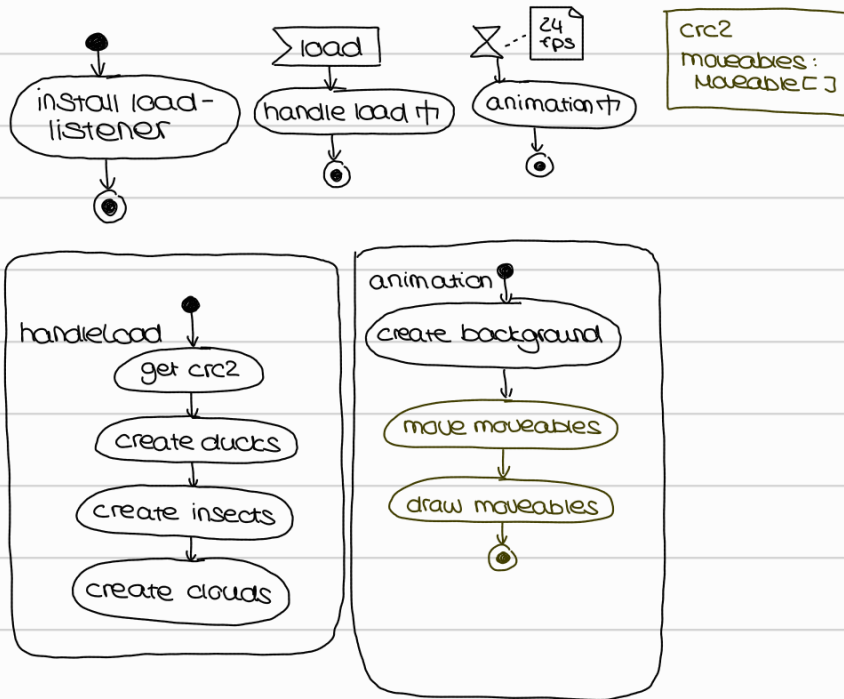 install load-
listener
load
handle load
24
fps
animation
crc2
moveables:
Moveable[]
handleLoad
get crc2
create ducks
create insects
create clouds
animation
create background
move moveables
draw moveables